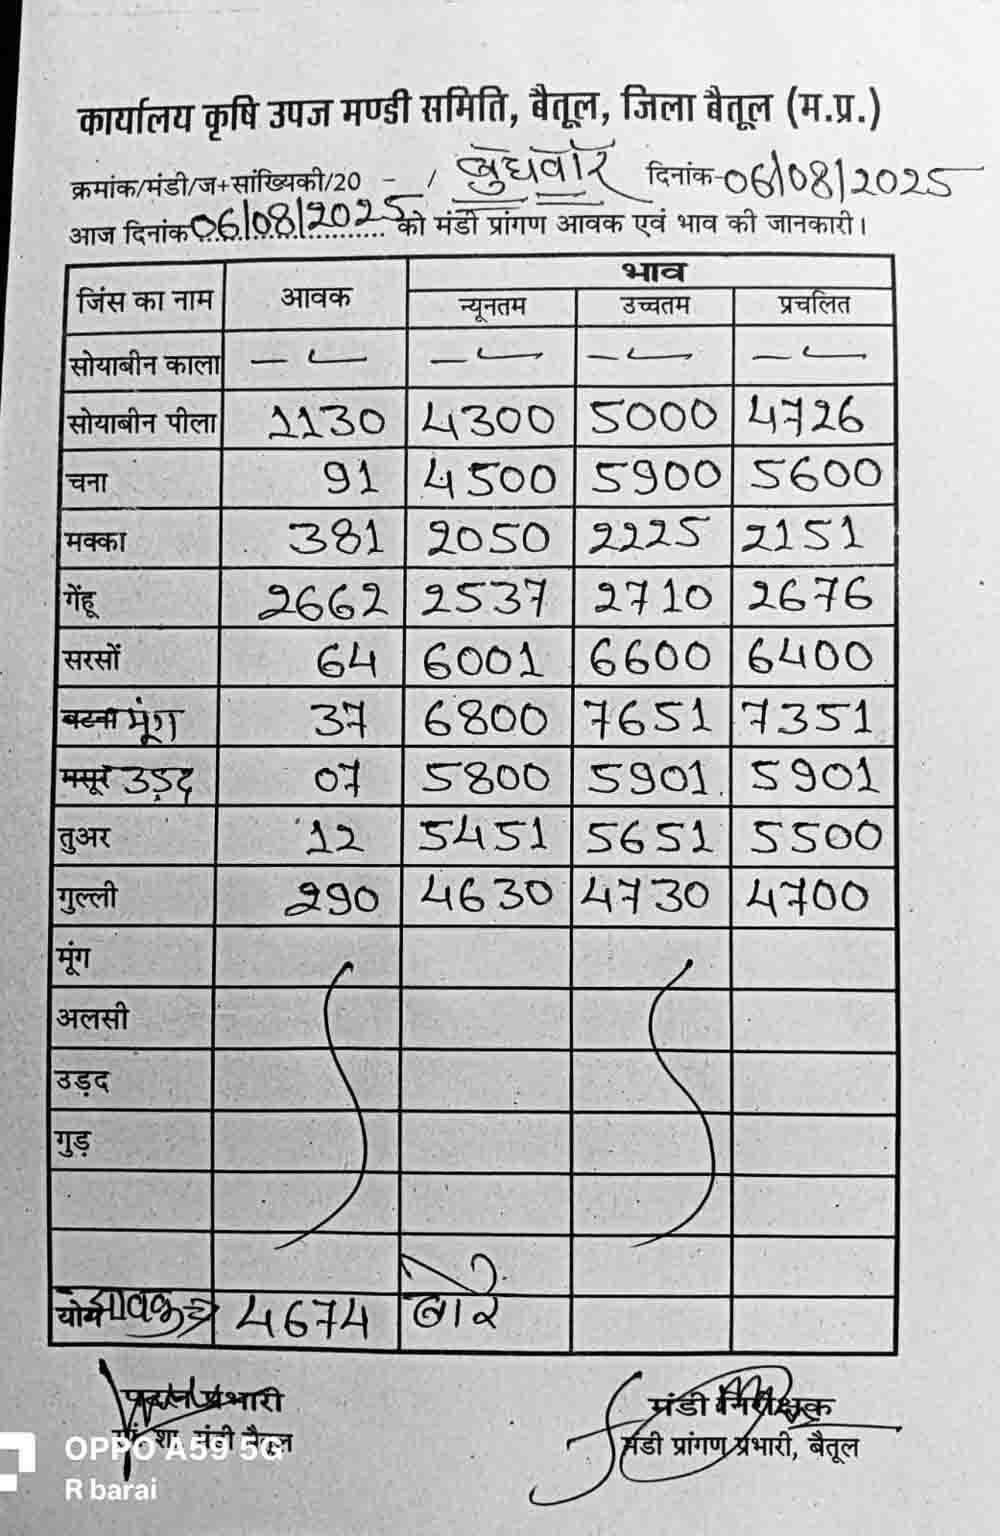 कार्यालय कृषि उपज मण्डी समिति, बैतूल, जिला बैतूल (म.प्र.)
क्रमांक/मंडी/ज+सांख्यिकी/20 - / बुधवार दिनांक-06/08/2025
आज दिनांक 06/08/2025 को मंडी प्रांगण आवक एवं भाव की जानकारी।
जिंस का नाम आवक भाव
न्यूनतम उच्चतम प्रचलित
सोयाबीन काला — — — —
सोयाबीन पीला 1130 4300 5000 4726
चना 91 4500 5900 5600
मक्का 381 2050 2225 2151
गेंहू 2662 2537 2710 2676
सरसों 64 6001 6600 6400
बटना मूंग 37 6800 7651 7351
मसूर उड़द 07 5800 5901 5901
तुअर 12 5451 5651 5500
गुल्ली 290 4630 4730 4700
मूंग
अलसी
उड़द
गुड़
योग आवक 4674 बोरे
प्रभारी मंडी निरीक्षक
मंडी बैतूल मंडी प्रांगण प्रभारी, बैतूल
OPPO A59 5G
R barai